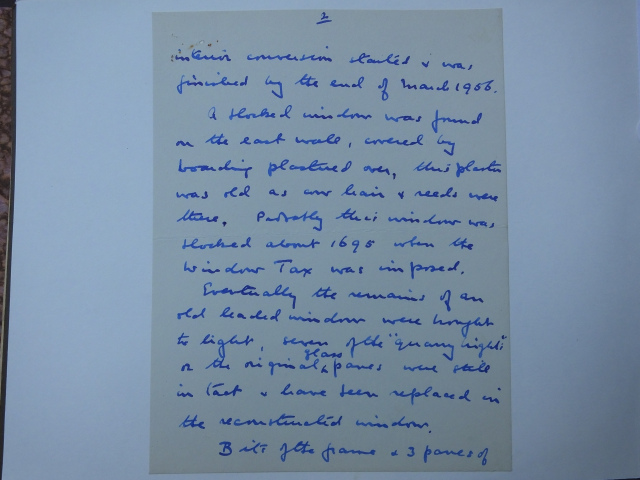 2
interior conversion started & was
finished by the end of March 1956.
A blocked window was found
on the east wall, covered by
boarding plastered over, this plaster
was old as cow hair & reeds were
there. Probably this window was
blocked about 1695 when the
Window Tax was imposed.
Eventually the remains of an
old leaded window were brought
to light, seven of the "quarry lights"
or the original glass panes were still
in tact & have been replaced in
the reconstructed window.
Bits of the frame & 3 panes of